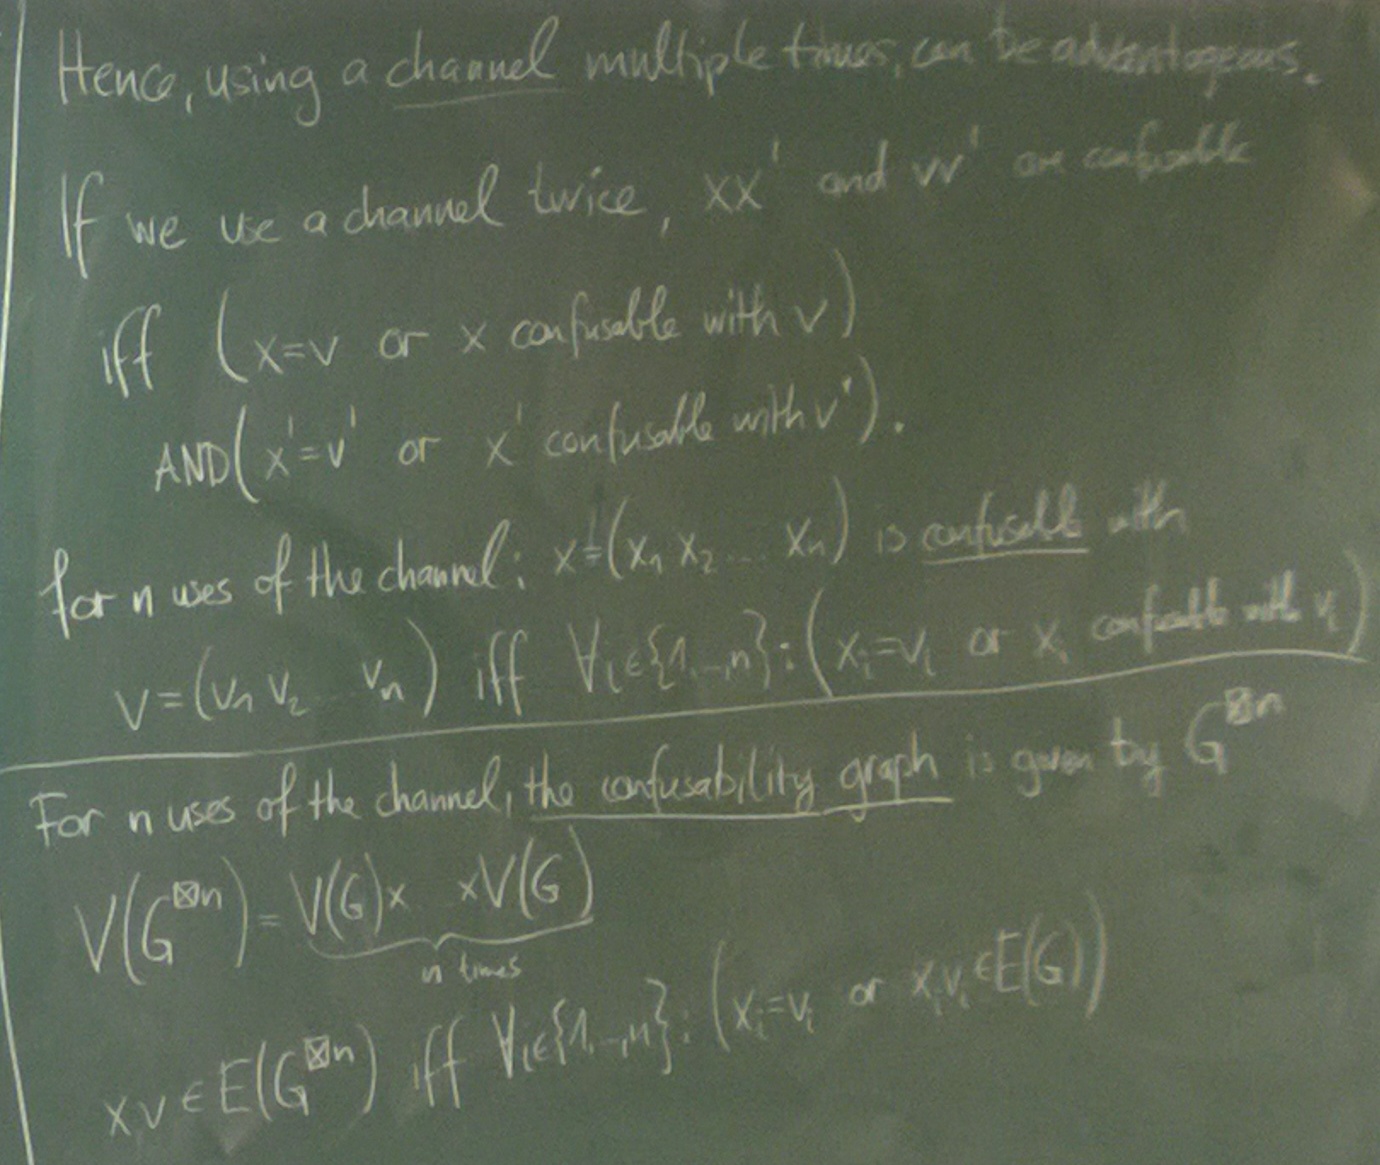 Hence, using a channel multiple times, can be advantageous.
If we use a channel twice, xx' and vv' are confusable
iff (x=v or x confusable with v)
AND(x'=v' or x' confusable with v').
for n uses of the channel: x=(x₁ x₂ ... xₙ) is confusable with
v=(v₁ v₂ ... vₙ) iff ∀i∈{1,...,n}: (xᵢ=vᵢ or xᵢ confusable with vᵢ)
For n uses of the channel, the confusability graph is given by G^⊠n
V(G^⊠n) = V(G)× ×V(G)
n times
xv∈E(G^⊠n) iff ∀i∈{1,...,n}: (xᵢ=vᵢ or xᵢvᵢ∈E(G))